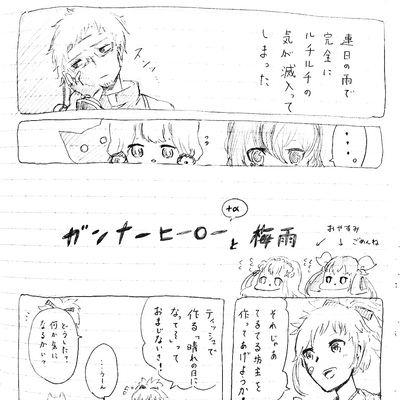 連日の雨で
完全に
ルチルチの
気が滅入って
しまった
ズーン
・・・。
ガンナーヒーローと梅雨
+α
おやすみ
ごめんね
それじゃあ
てるてる坊主を
作ってあげようか!
ティッシュで
作る「晴れの日に
なって〜」って
おまじないさ!
・・・うーん
どうした?
何か気に
なるかい?